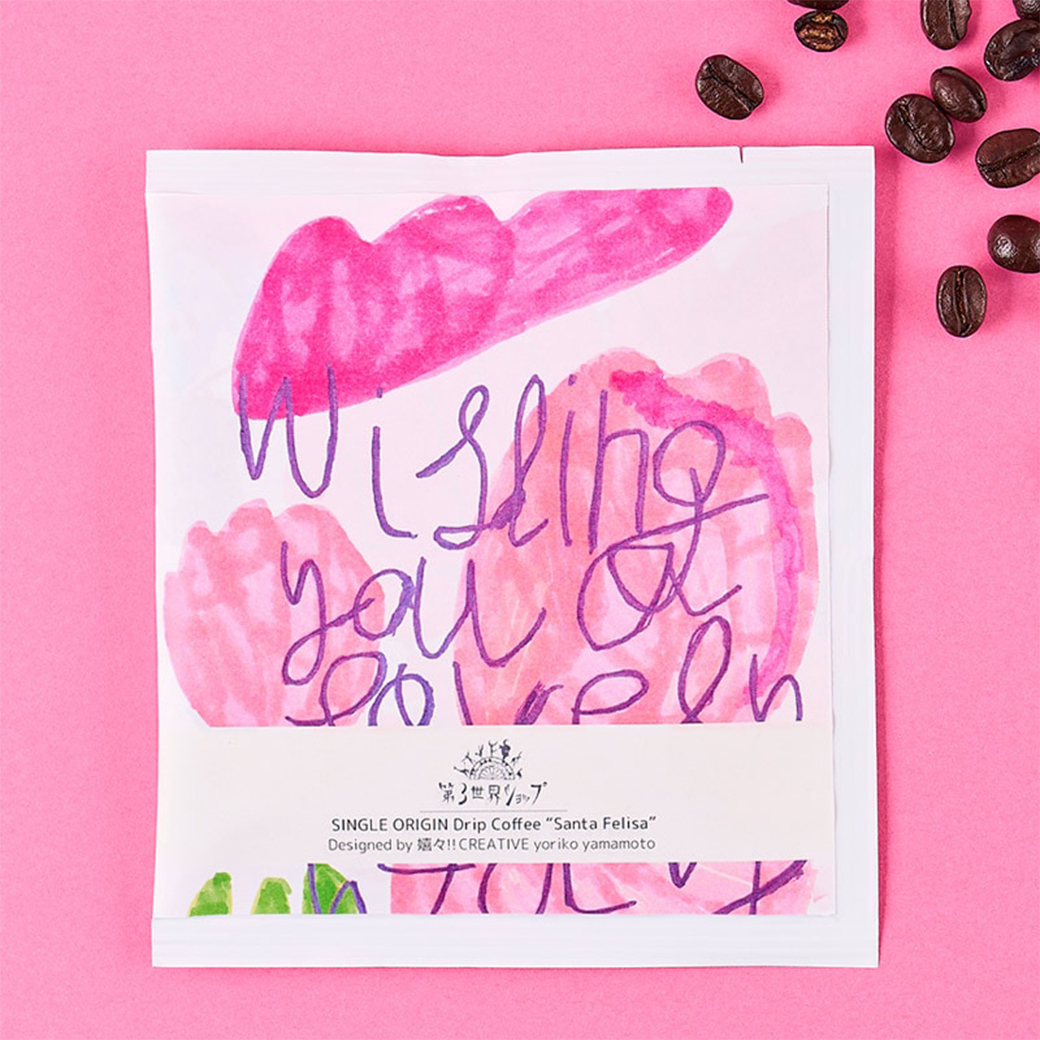 Wishing
you a
lovely
第3世界ショップ
SINGLE ORIGIN Drip Coffee “Santa Felisa”
Designed by 嬉々!!CREATIVE yoriko yamamoto